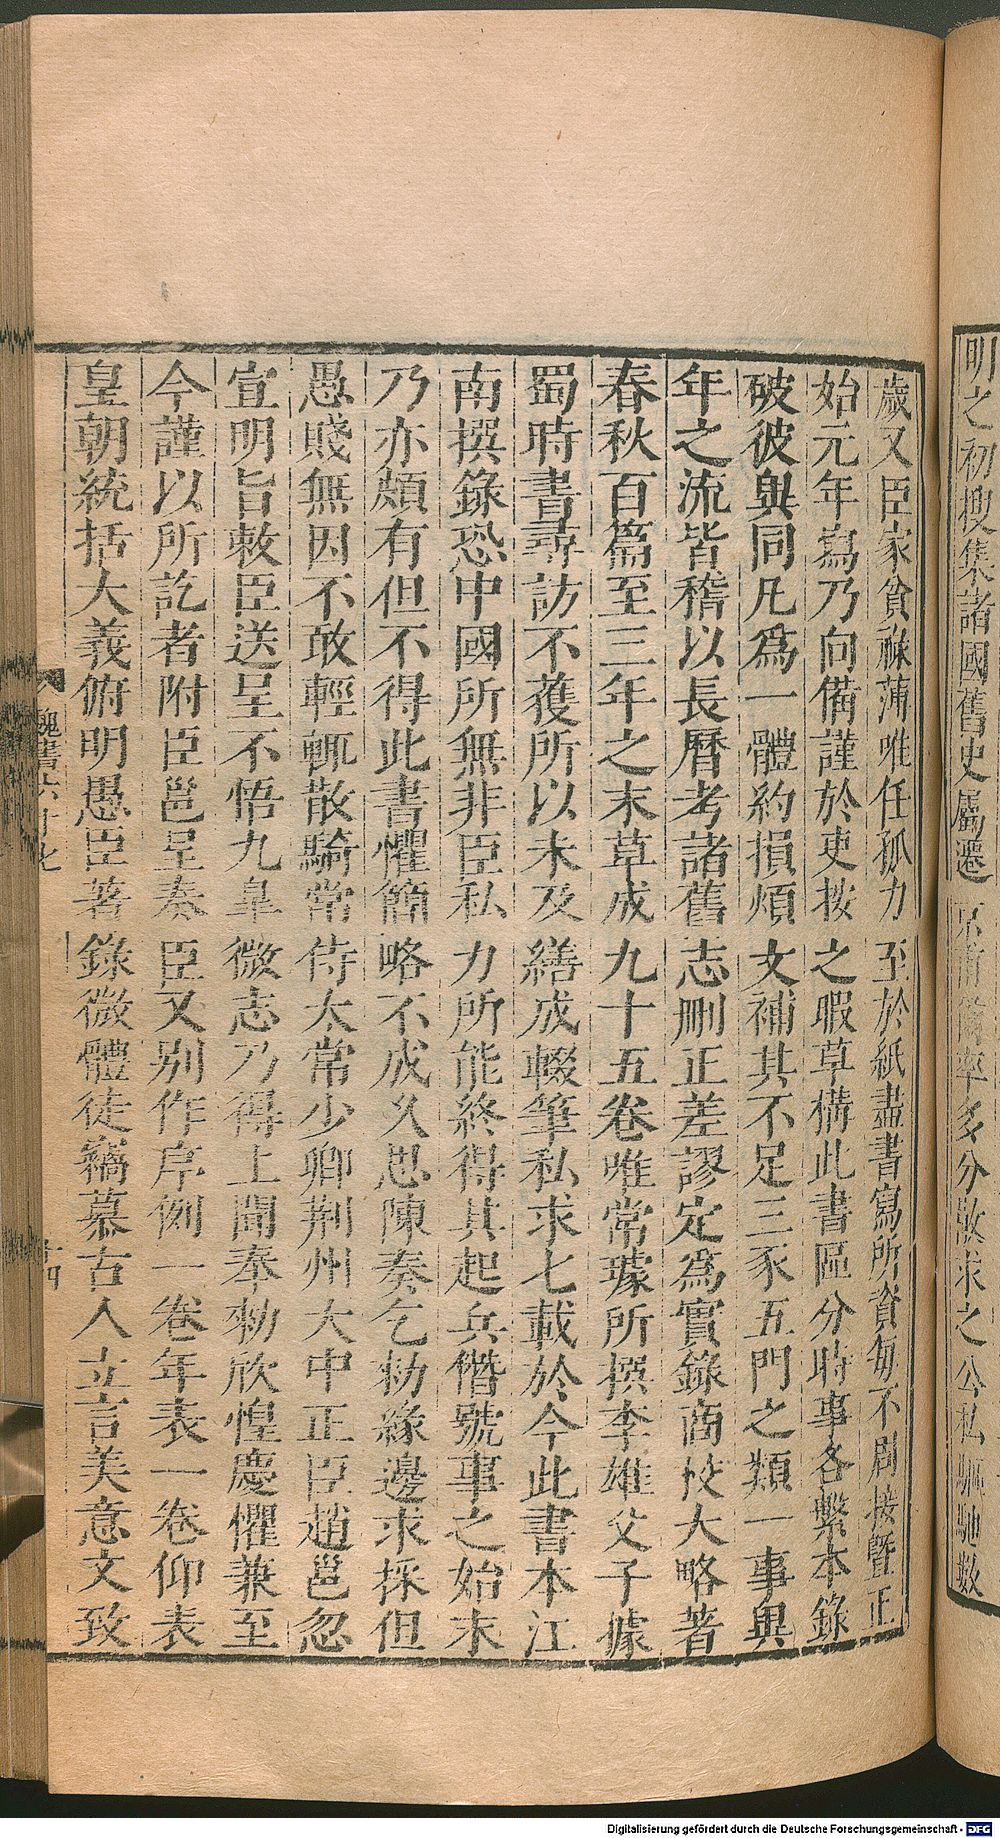 明之初搜集諸國舊史屬遷京甫爾率多分散求之公私驅馳數
歲又臣家貧祿薄唯任孤力至於紙盡書寫所資每不周接暨正
始元年寫乃向備謹於吏按之暇草構此書區分時事各繫本錄
破彼與同凡爲一體約損煩文補其不足三豕五門之類一事異
年之流皆稽以長曆考諸舊志刪正差謬定爲實錄商校大略著
春秋百篇至三年之末草成九十五卷唯常璩所撰李雄父子據
蜀時書尋訪不獲所以未及繕成輟筆私求七載於今此書本江
南撰錄恐中國所無非臣私力所能終得其起兵僭號事之始末
乃亦頗有但不得此書懼簡略不成久思陳奏乞勑緣邊求採但
愚賤無因不敢輕輒散騎常侍太常少卿荆州大中正臣趙邕忽
宣明旨敕臣送呈不悟九皐微志乃得上聞奉勑欣惶慶懼兼至
今謹以所訖者附臣邕呈奏臣又别作序例一卷年表一卷仰表
皇朝統括大義俯明愚臣著錄微體徒竊慕古人立言美意文致
魏書六十七
十四
Digitalisierung gefördert durch die Deutsche Forschungsgemeinschaft - DFG